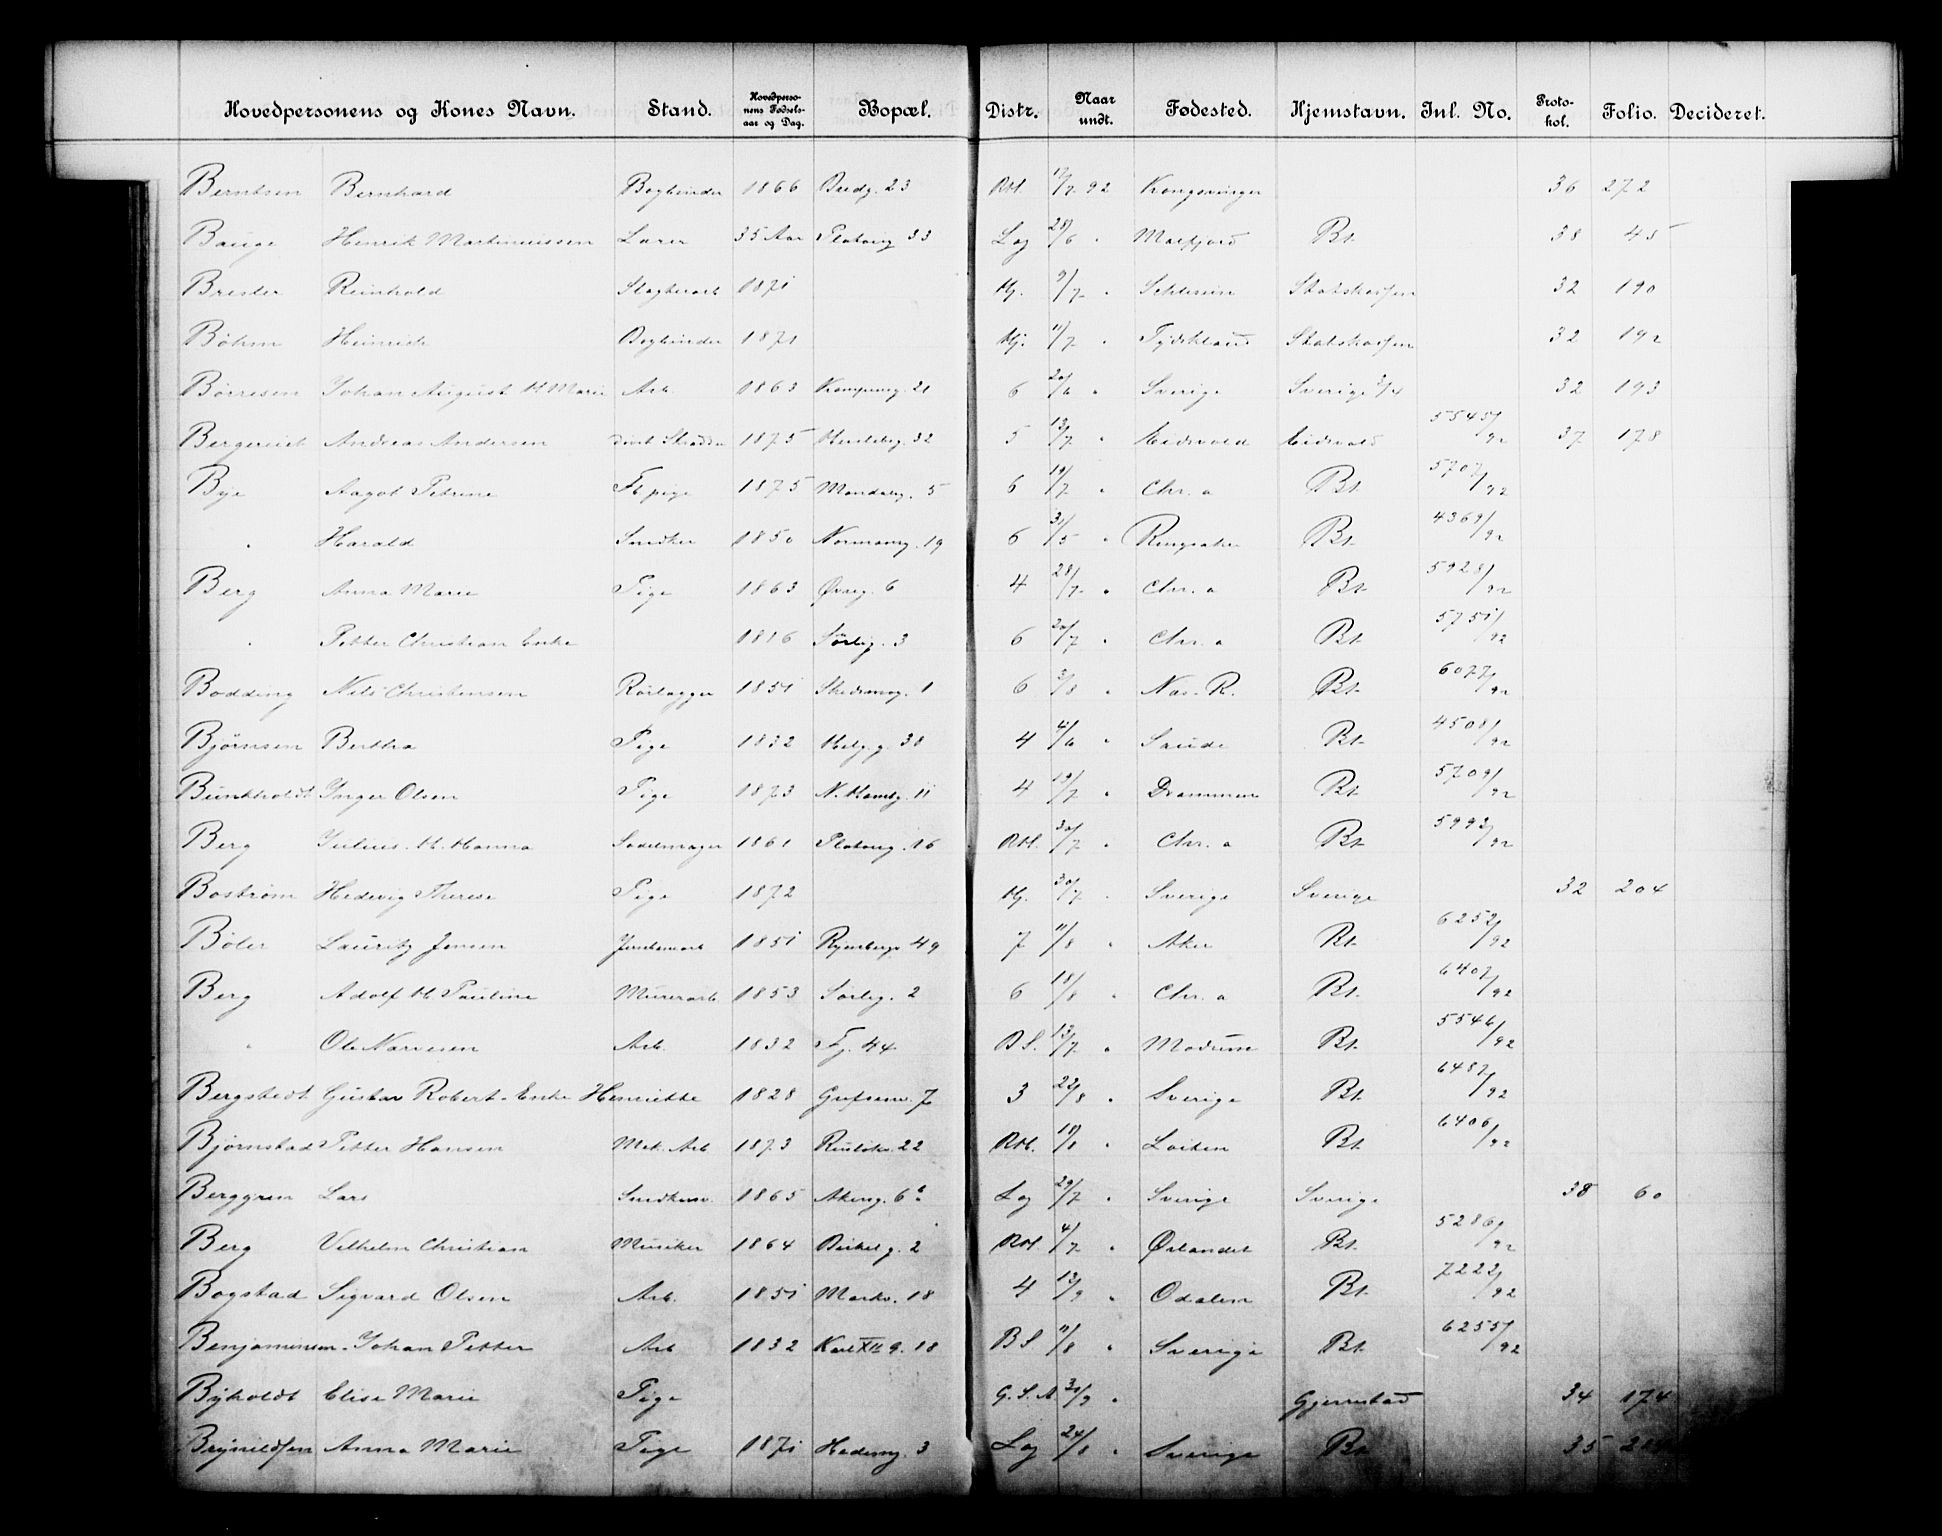 Hovedpersonens og Kones Navn. Stand. Hovedperso-nens Fødsels-aar og Dag. Bopæl. Distr. Naar undt. Fødested. Hjemstavn. Inl. No. Proto-kol. Folio. Decideret.
Berntsen Bernhard Bogbinder 1866 Bredg. 23 RM. 17/7 92 Kongsvinger 36 272
Bauge Henrik Martinuissen Lærer 35 Aar Platoug 33 Lag 28/6 " Malfjord Bt. 38 45
Brester Reinhold Slagterarb 1871 Hj. 9/7 " Schlesien 32 190
Böhm Heinrich Bogbinder 1871 Hj. 11/7 " Tydskland 32 192
Börresen Johan August H. Marie Arb. 1863 Kampeng. 21 6 20/6 " Sverige Sverige 3/4 32 193
Bergereiet Andreas Andersen 1875 32 5 13/7 " Eidsvold Eidsvold 5545/92 37 178
Bye Aagot Petrine Fb pige 1875 Mandalsg. 5 6 19/7 " Chr. a Bt. 5707/92
" Harald Snedker 1850 Normanng. 19 6 31/5 " Ringsaker Bt. 4369/92
Berg Anna Marie Pige 1863 Øvreg. 6 4 28/7 " Chr. a Bt. 5928/92
" Petter Christian Enke 1816 Sörlig. 3 6 20/7 " Chr. a Bt. 5751/92
Bodding Nils Christensen Rörlægger 1851 Skedsmog. 1 6 3/8 " Næs. R. Bt. 6077/92
Björnsen Bertha Pige 1832 Helg. g. 38 4 4/6 " Saude Bt. 4508/92
Bunkholdt Inger Olsen Pige 1873 11 4 19/7 " Drammen Bt. 5709/92
Berg Julius. H. Hanna Sadelmager 1861 Platoug. 16 RM. 30/7 " Chr. a Bt. 5992/92
Boström Hedevig Therese Pige 1872 Hj. 30/7 " Sverige Sverige 32 204
Böler Lauritz Jensen 1851 Ryenbergv 49 7 11/8 " Aker Bt. 6252/92
Berg Adolf H. Pauline Murerarb 1853 Sörlig. 2 6 18/8 " Chr. a Bt. 6407/92
" Ole Narvesen Arb. 1832 Fj. 44 BS. 13/7 " Modum Bt. 5546/92
Bergstedt Gustav Robert. Enke Henriette 1828 Grefsenv. 7 3 22/8 " Sverige Bt. 6487/92
Björnstad Petter Hansen Mek. Arb 1873 Rusløkv. 22 RM. 18/8 " Löiten Bt. 6406/92
Berggren Lars Snedkersv. 1865 Akersg. 6 Lag 29/7 " Sverige Sverige 38 60
Berg Vilhelm Christian Musiker 1864 Birkel g. 2 RM 4/7 " Ørlandet Bt. 5286/92
Bogstad Sigvard Olsen Arb. 1851 Markv. 18 4 13/9 " Odalen Bt. 7222/92
Benjaminsen. Johan Petter Arb 1832 Karl XII g. 18 BS 11/8 " Sverige Bt. 6255/92
Byholdt Elise Marie Pige G. S. A. 31/9 " Gjerrestad 34 174
Brynildsen Anna Marie Pige 1871 Hedemg. 3 Lag 24/8 " Sverige Bt. 35